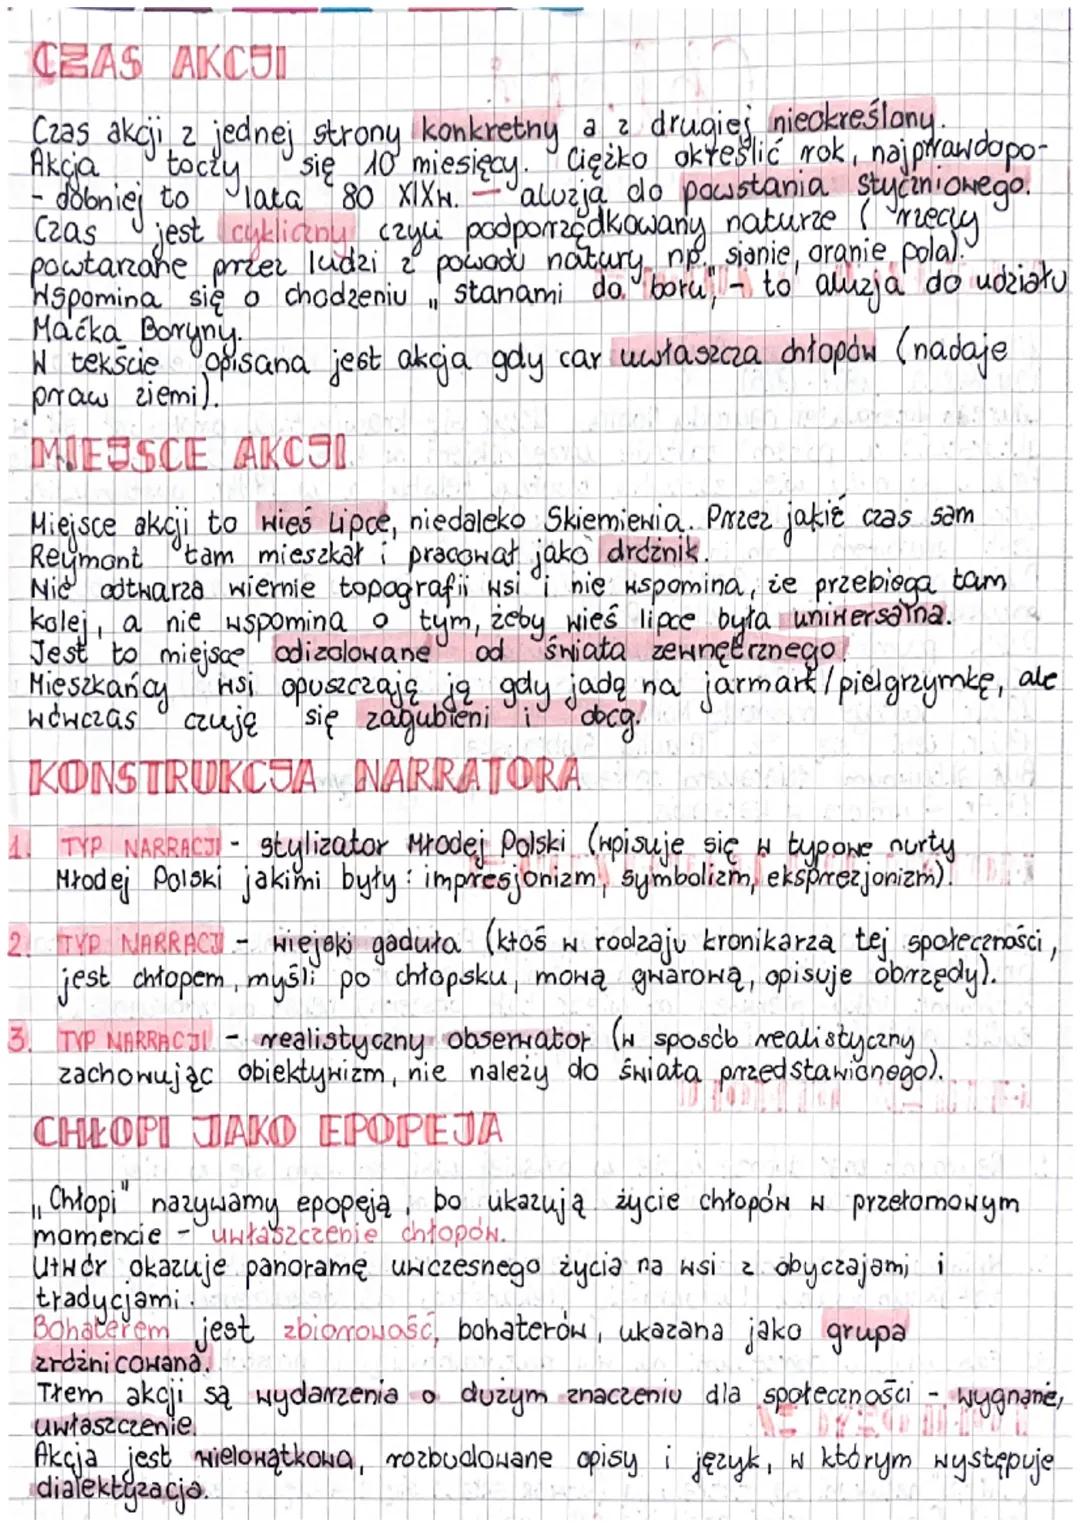 CZAS AKCJI
Czas akcji z jednej strony konkretny a z drugiej nieokreślony.
Akcja toczy się 10 miesięcy. Ciężko określić rok, najprawdopo-
- dobniej to lata 80 XIXw. — aluzja do powstania styczniowego.
Czas jest cykliczny czyli podporządkowany naturze (rzeczy
powtarzane przez ludzi z powodu natury np. sianie, oranie pola).
Wspomina się o chodzeniu „stanami do boru" - to aluzja do udziału
Maćka Boryny.
W tekście opisana jest akcja gdy car uwłaszcza chłopów (nadaje
praw ziemi).
MIEJSCE AKCJI
Miejsce akcji to wieś Lipce, niedaleko Skierniewia. Przez jakiś czas sam
Reymont tam mieszkał i pracował jako dróżnik.
Nie odtwarza wiernie topografii wsi i nie wspomina, że przebiega tam
kolej, a nie wspomina o tym, żeby wieś lipce była uniwersalna.
Jest to miejsce odizolowane od świata zewnętrznego.
Mieszkańcy wsi opuszczają ją gdy jadą na jarmark/pielgrzymkę, ale
wówczas czują się zagubieni i obcy.
KONSTRUKCJA NARRATORA
1. TYP NARRACJI - stylizator Młodej Polski (wpisuje się w typowe nurty
Młodej Polski jakimi były: impresjonizm, symbolizm, ekspresjonizm).
2. TYP NARRACJI - wiejski gaduła (ktoś w rodzaju kronikarza tej społeczności,
jest chłopem, myśli po chłopsku, mową gwarową, opisuje obrzędy).
3. TYP NARRACJI - realistyczny obserwator (w sposób realistyczny
zachowując obiektywizm, nie należy do świata przedstawionego).
CHŁOPI JAKO EPOPEJA
„Chłopi" nazywamy epopeją, bo ukazują życie chłopów w przełomowym
momencie - uwłaszczenie chłopów.
Utwór okazuje panoramę uwczesnego życia na wsi z obyczajami i
tradycjami.
Bohaterem jest zbiorowość, bohaterów, ukazana jako grupa
zróżnicowana.
Tłem akcji są wydarzenia o dużym znaczeniu dla społeczności - wygnane,
uwłaszczenie.
Akcja jest wielowątkowa, rozbudowane opisy i język, w którym występuje
dialektyzacja.